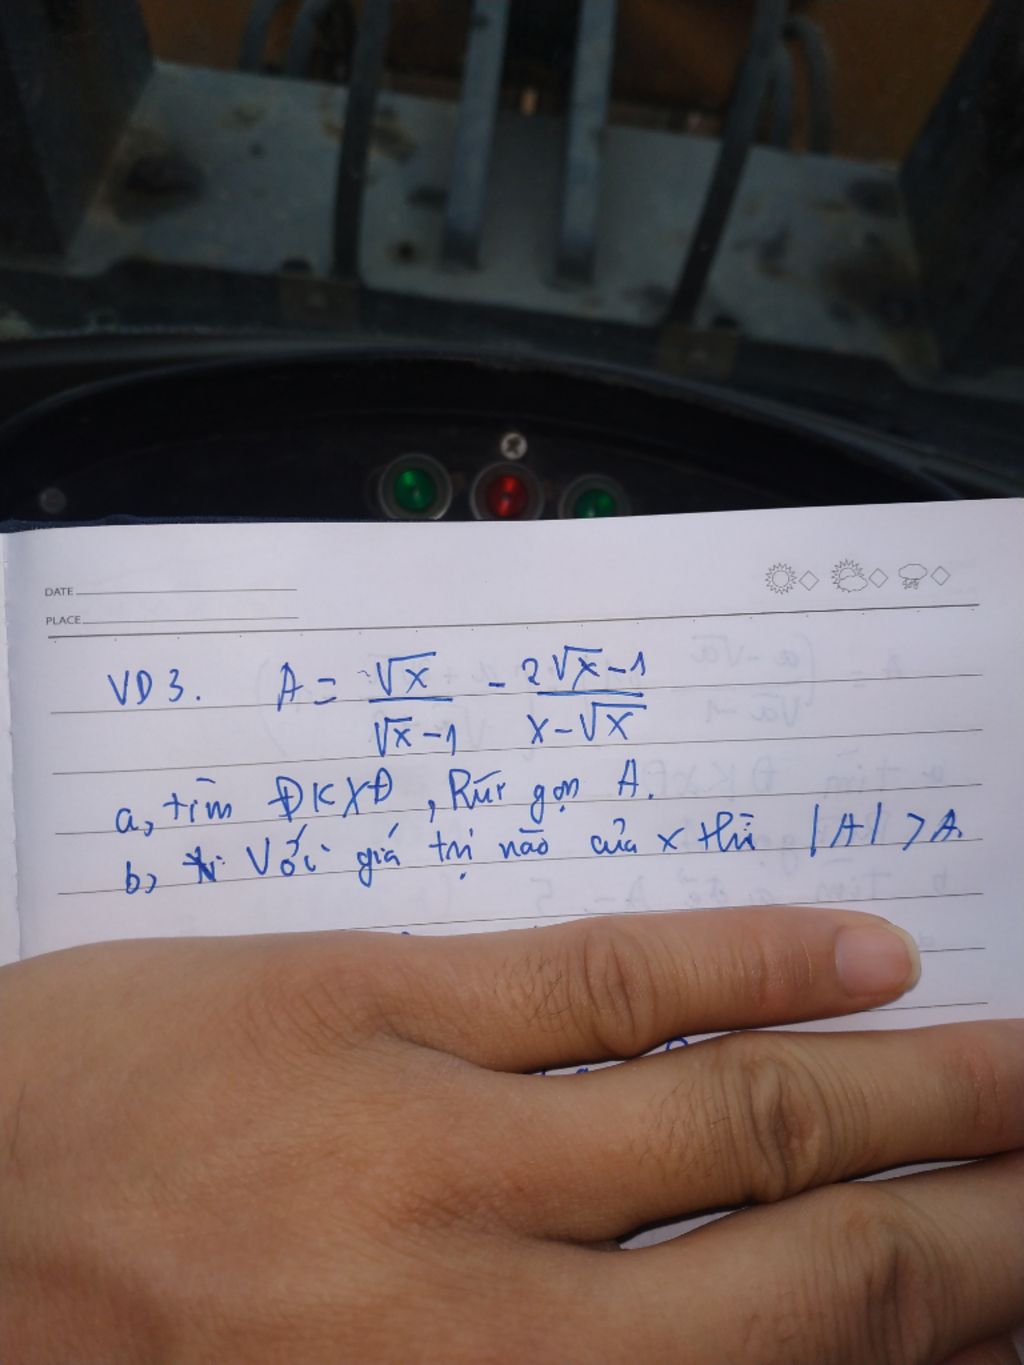 DATE
PLACE
VD 3. A = √x / (√x - 1) - (2√x - 1) / (x - √x)
a, tìm ĐKXĐ, Rút gọn A.
b, Với giá trị nào của x thì |A| > A.